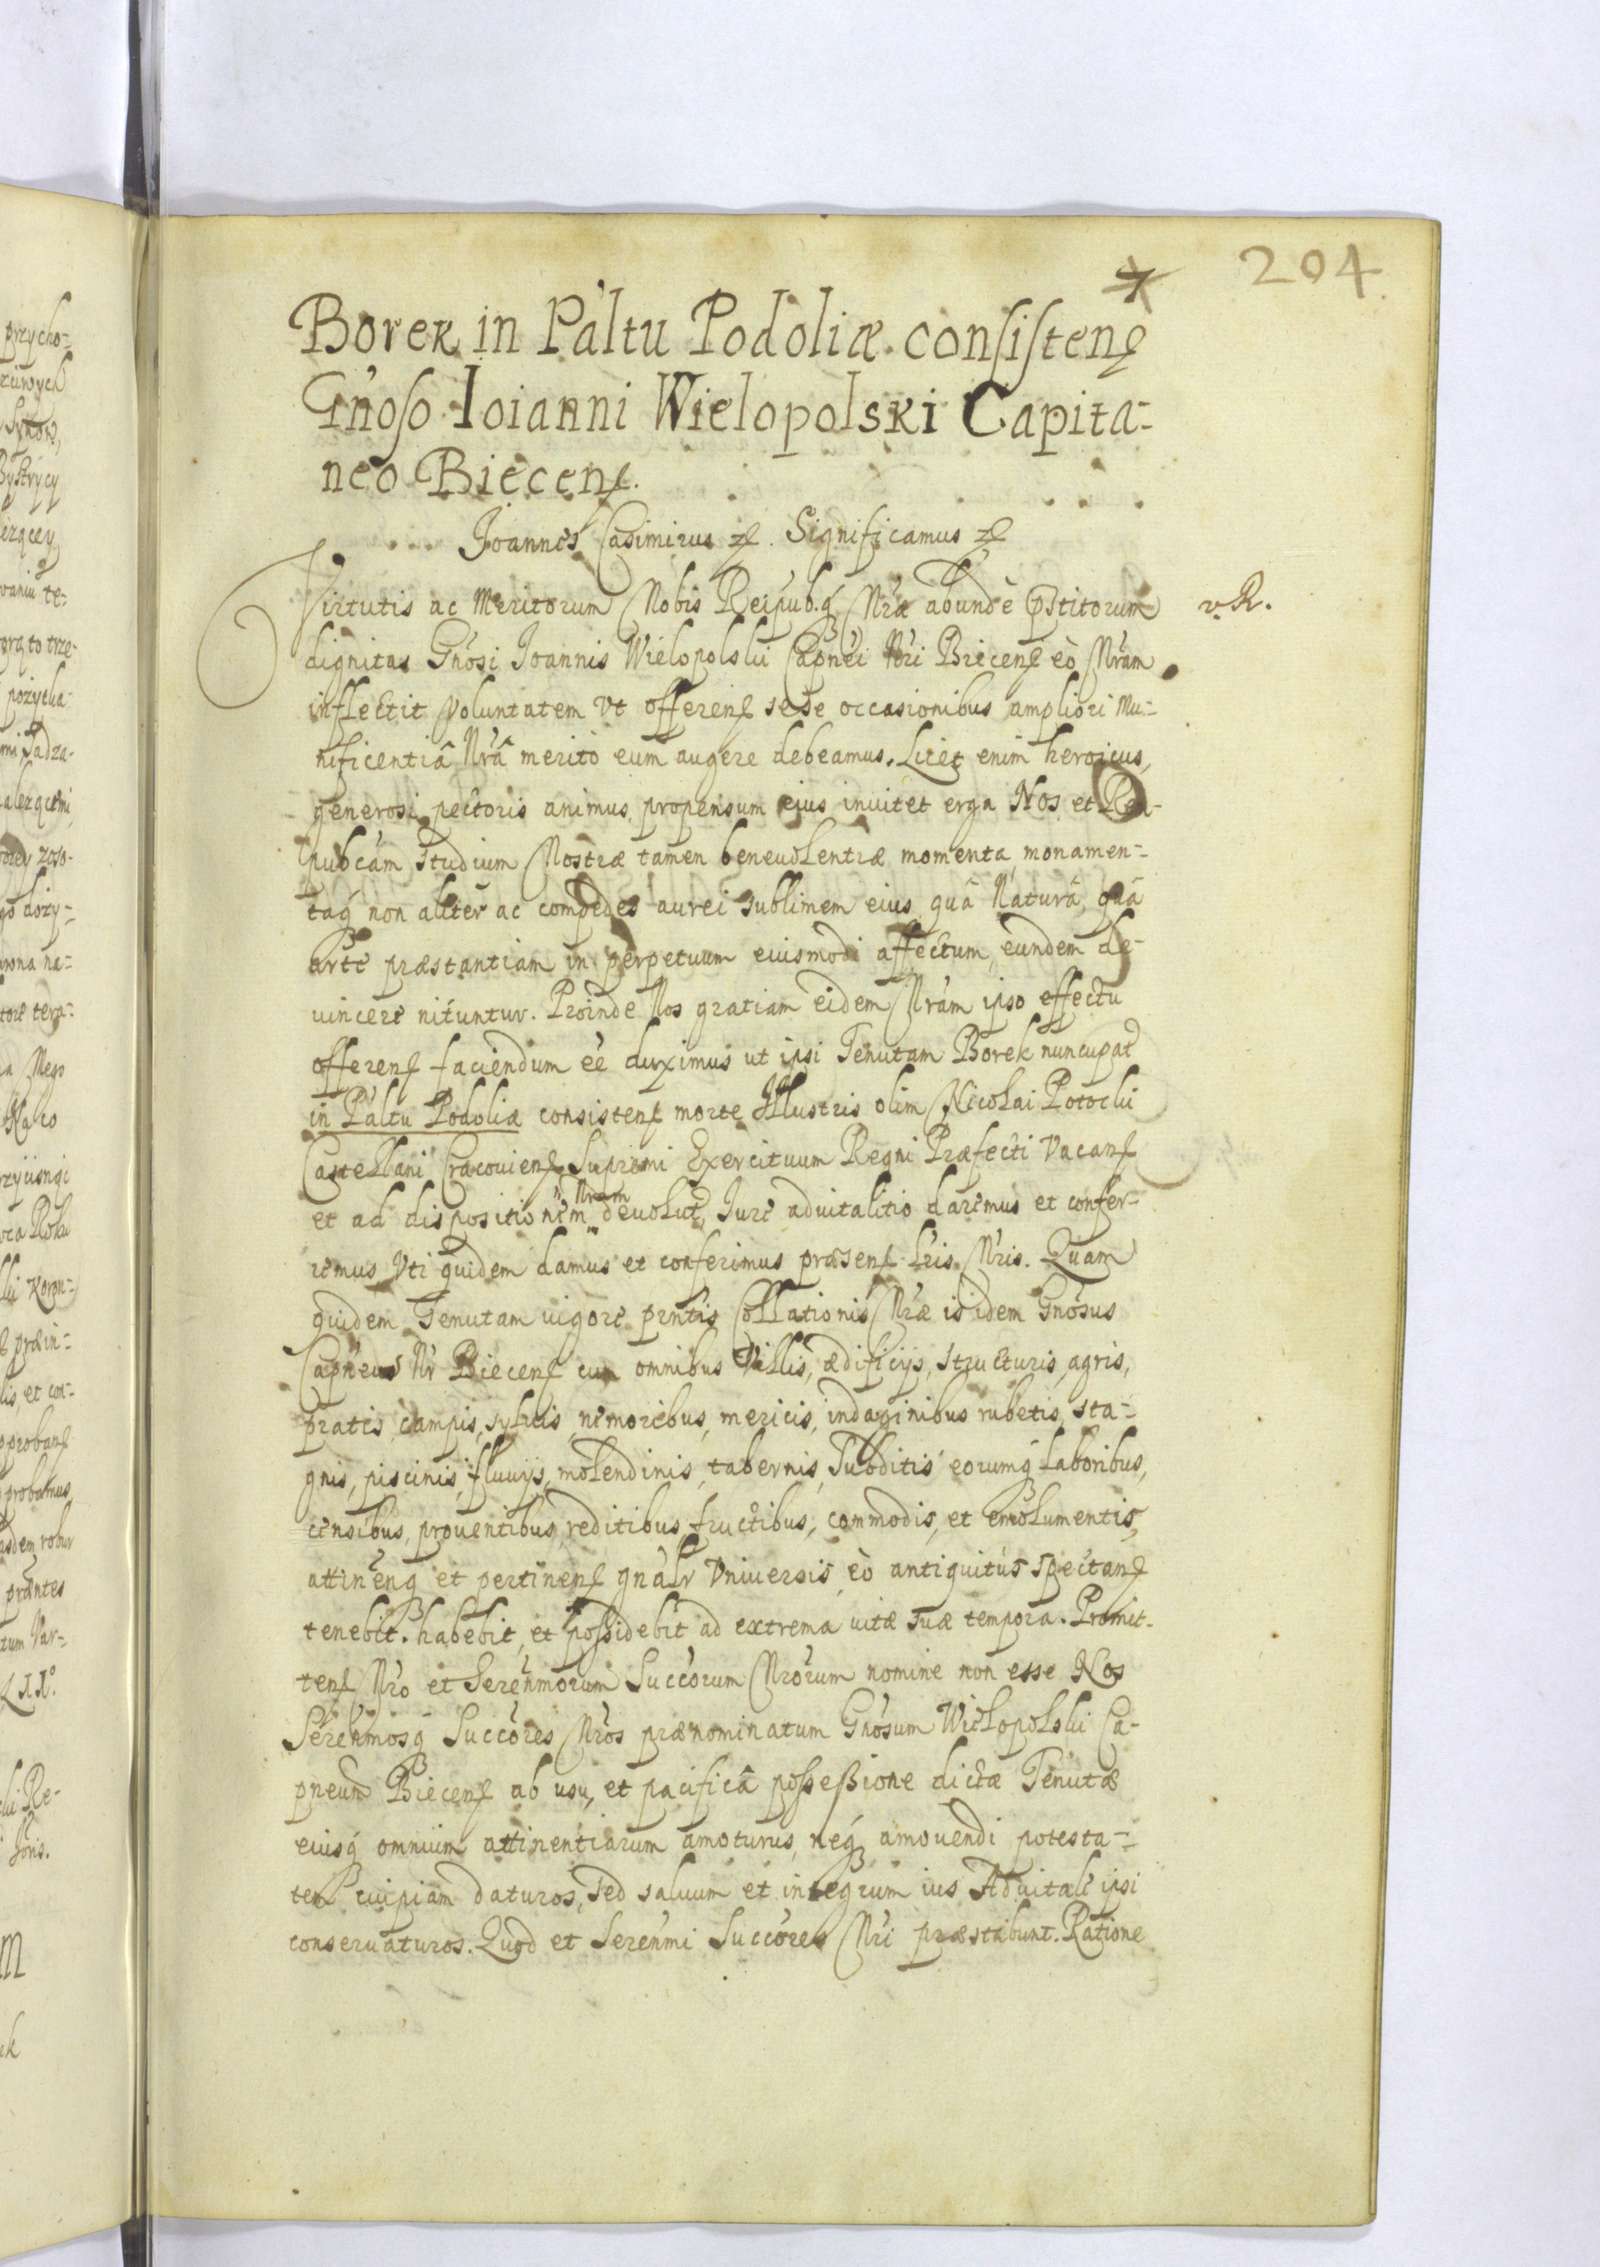 204
Borek in P'altu Podoliæ consistens
Gnoso Ioianni Wielopolski Capita-
neo Biecens.
Joannes Casimirus etc. Significamus etc
Virtutis ac Meritorum Nobis Reipub.q Nræ abundè pstitorum
v R.
dignitas Gnosi Joannis Wielopolski Capnei Nri Biecens eò Nram
inflectit voluntatem Vt offerens sese occasionibus ampliori Mu-
nificentiâ Nrâ meritò eum augere debeamus. Licet enim heroicus,
generosi pectoris animus propensum eius inuitet erga Nos et Rem-
pubcam studium Nostræ tamen beneuolentiæ momenta monamen-
taq non aliter ac compedes aurei sublimem eius quâ Naturâ, quâ
arte præstantiam in perpetuum eiusmodi affectum, eundem de-
uincere nituntur. Proinde Nos gratiam eidem Nram ipso effectu
offerens faciendum ee duximus ut ipsi Tenutam Borek nuncupat
in Paltu Podoliæ consistens morte Illustris olim Nicolai Potocki
Castellani Cracouiens Supremi Exercituum Regni Præfecti Vacans
et ad dispositionem Nram deuolut Iure aduitalitio daremus et confer-
remus Vti quidem damus et conferimus præsens lris Nris. Quam
quidem Tenutam uigore prntis Collationis Nræ is idem Gnosus
Capneus Nr Biecens cum omnibus Villis, ædificijs, structuris, agris,
pratis, campis, syluis, nemoribus, mericis, indaginibus rubetis, sta-
gnis, piscinis, fluuijs, molendinis, tabernis, Subditis eorumq laboribus,
censibus, prouentibus, reditibus fructibus, commodis, et emolumentis,
attinenq et pertinens gnalr Vniuersis, eò antiquitùs spectans
tenebit. habebit, et possidebit ad extrema uitæ suæ tempora. Promit-
tens Nro et Serenmorum Succorum Nrorum nomine non esse Nos
Serenmosq Succores Nros prænominatum Gnosum Wielopolski Ca-
pneum Biecens ab usu, et pacificâ possessione dictæ Tenutæ
eiusq omnium attinentiarum amoturus, neq amouendi potesta-
tem cuipiam daturos, sed saluum et integrum ius Aduitale ipsi
conseruaturos. Quod et Serenmi Succores Nri præstabunt. Ratione